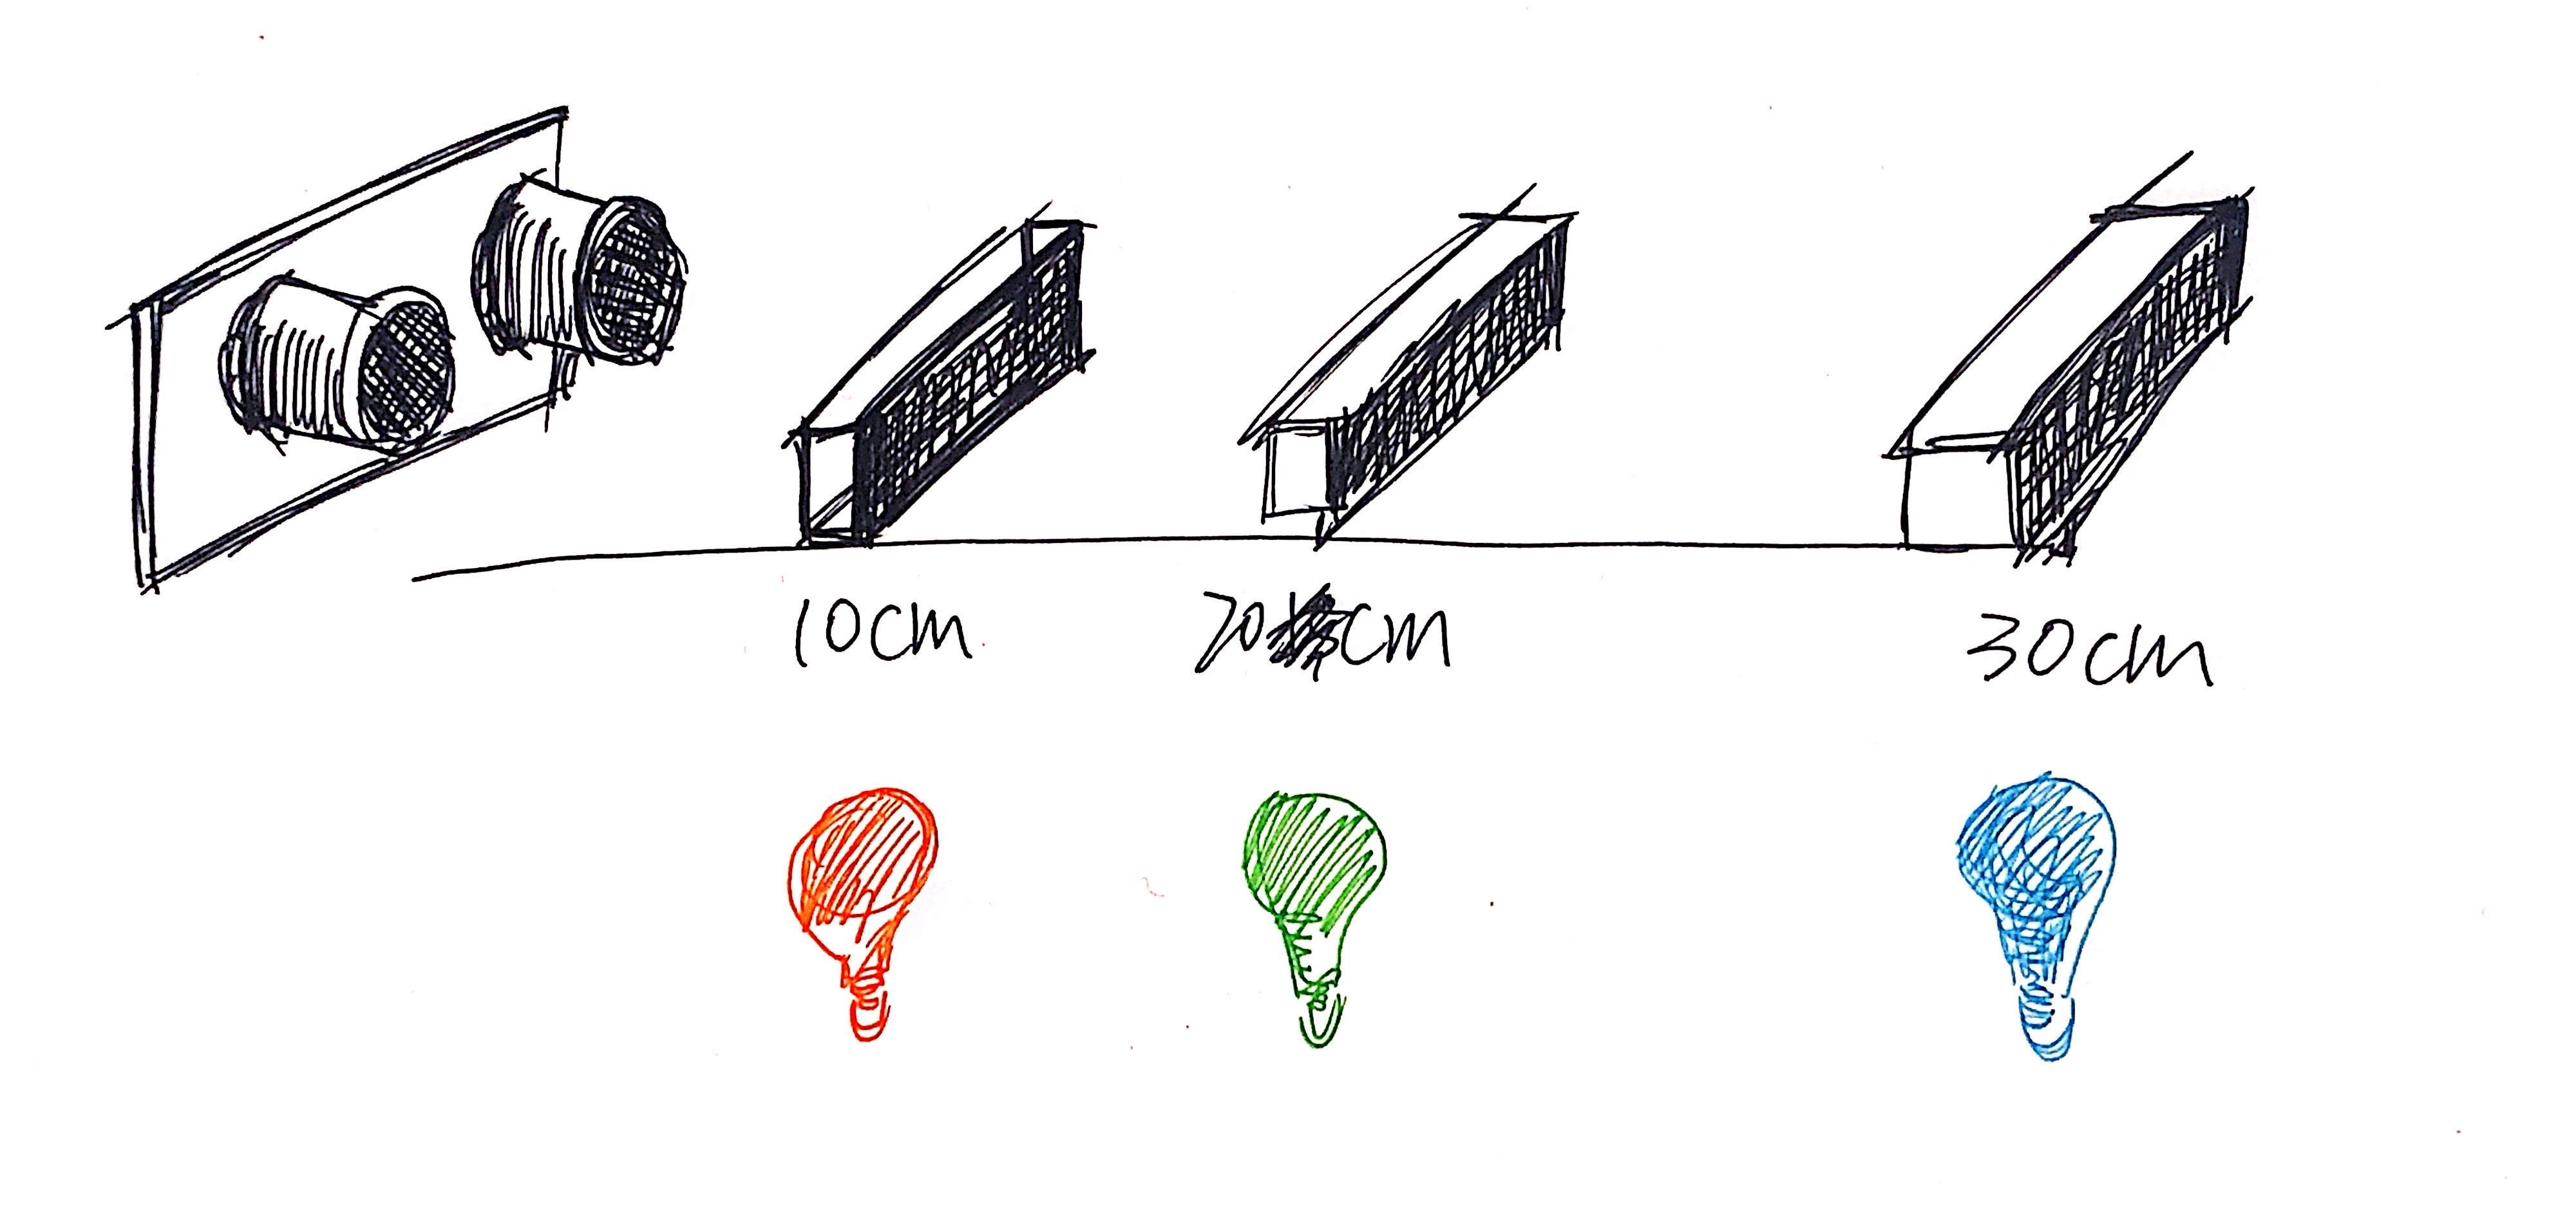 10cm 20cm 30cm